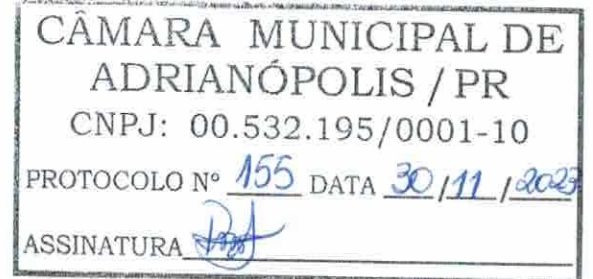 CÂMARA MUNICIPAL DE
ADRIANÓPOLIS / PR
CNPJ: 00.532.195/0001-10
PROTOCOLO Nº 155 DATA 30/11/2023
ASSINATURA